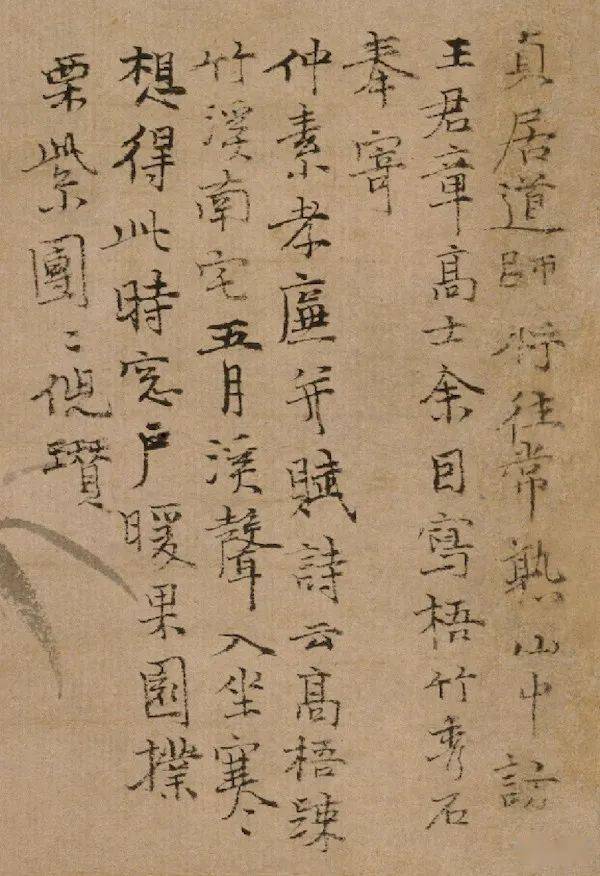 貞居道師將往常熟山中訪
王君章高士余因寫梧竹秀石
奉寄
仲素孝廉并賦詩云高梧踈
竹溪南宅五月溪聲入坐寒
想得此時窓戶暖果園撲
栗紫團〻倪瓚